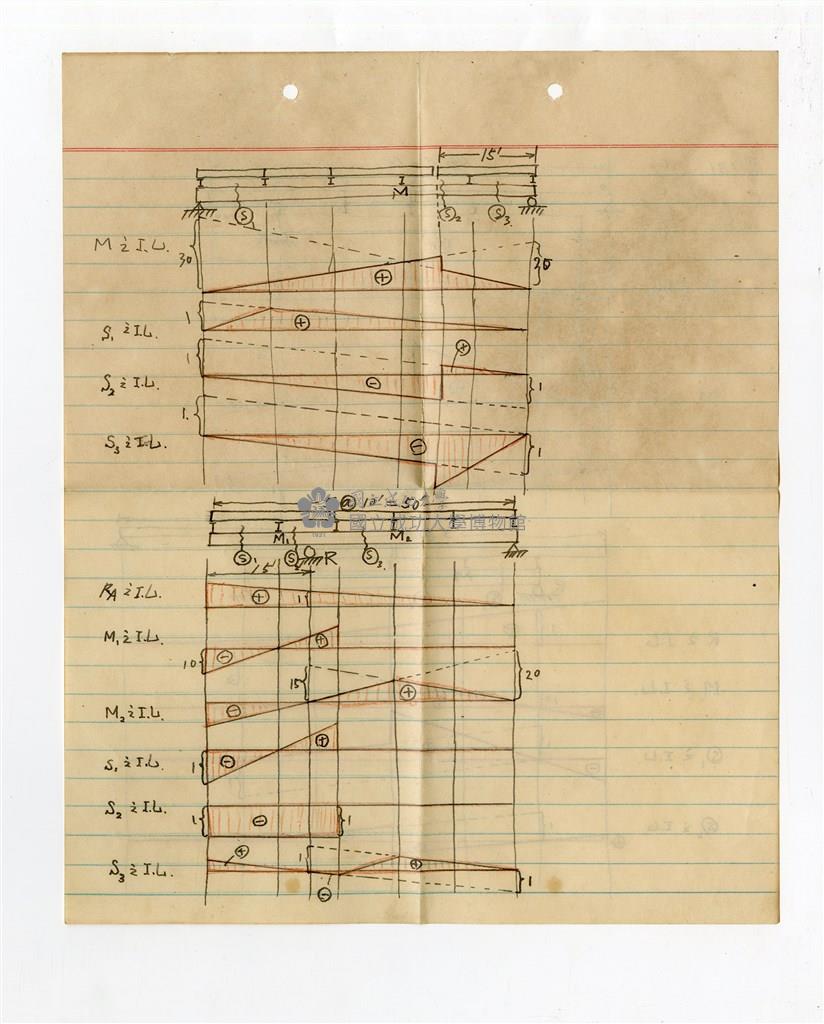 15'
I I I I M I I
S S₂ S₃
M 之 I.L.
30 30
+
1
+
S₁ 之 I.L.
1
+
S₂ 之 I.L.
-
1
1
S₃ 之 I.L.
-
1
@ 10' = 50'
國立成功大學博物館
I I
M₁ M₂
S₁ S₂ R S₃
15'
RA 之 I.L.
+
1
M₁ 之 I.L.
+
10
-
15
20
M₂ 之 I.L.
-
+
S₁ 之 I.L.
1
-
+
S₂ 之 I.L.
1
-
1
+
S₃ 之 I.L.
1
+
-
1